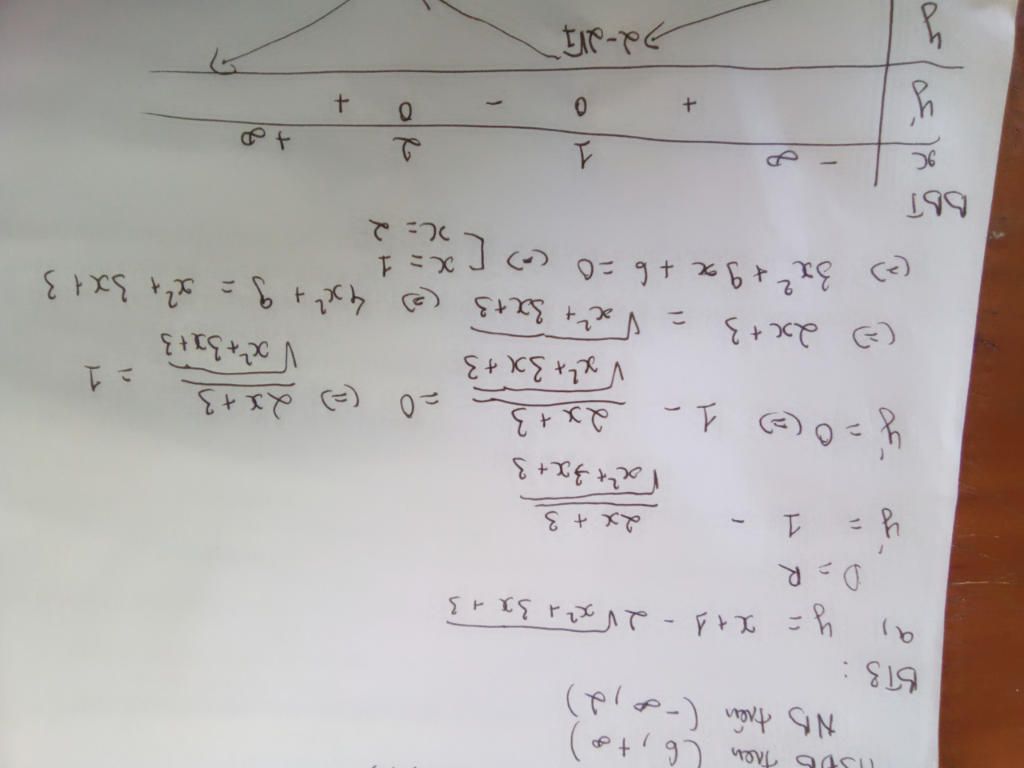 HSĐB trên (6, +∞)
NB trên (-∞, 2)
BT3:
a, y = x+1 - 2√x²+3x+3
D = R
y' = 1 - 2x+3 / √x²+3x+3
y' = 0 (=) 1 - 2x+3 / √x²+3x+3 = 0 (=) 2x+3 / √x²+3x+3 = 1
(=) 2x+3 = √x²+3x+3 (=) 4x²+9 = x²+3x+3
(=) 3x²+9x+6=0 (=) [ x=1
x=2
BBT
x -∞ 1 2 +∞
y' + 0 - 0 +
y 2-2√7